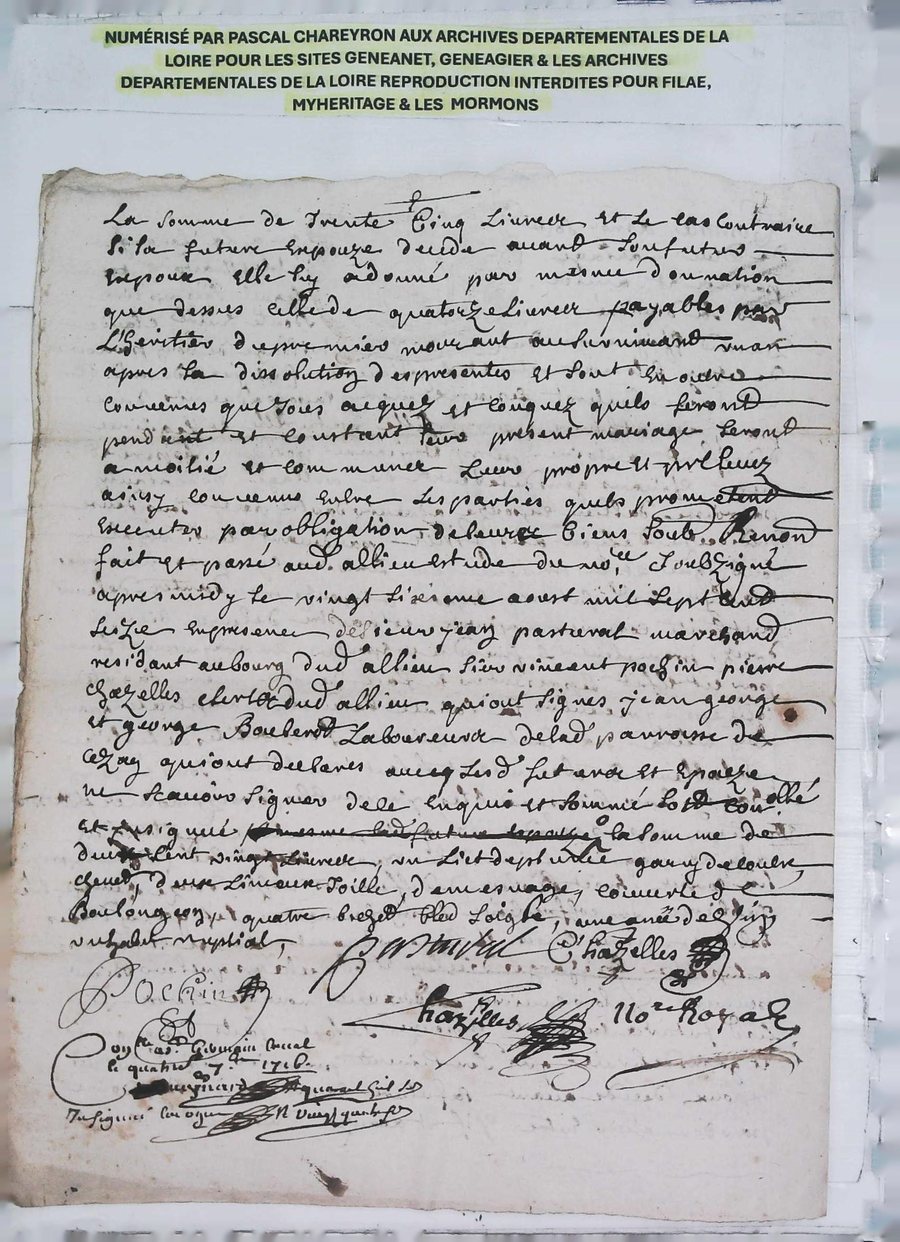 NUMÉRISÉ PAR PASCAL CHAREYRON AUX ARCHIVES DEPARTEMENTALES DE LA
LOIRE POUR LES SITES GENEANET, GENEAGIER & LES ARCHIVES
DEPARTEMENTALES DE LA LOIRE REPRODUCTION INTERDITES POUR FILAE,
MYHERITAGE & LES MORMONS
La somme de trente Cinq Livres et le cas contraire
Si la future Espouze decede avant son futur
Espoux elle luy a donné par mesme donnation
que dessus celle de quatorze Livres payables par
L'heritier du premier mourant au survivant un an
apres la dissollution des presentes et sont en outre
convenus que tous acquez et conquez quils feront
pendant et constant leur present mariage seront
a moitié et communes
ainsy convenu entre Les parties quels promettent
executer par obligation de leurs biens soub Renon
fait et passé aud allieu estude du no.re soubzigné
apres midy le vingt sixieme aoust mil sept cent
seize en presence de sieur jean pastural marchand
residant au bourg dud allieu sieur vincent pochin pierre
chazelles clerc dud allieu qui ont signes jean george
et george Laboureurs de lad parroisse de
Cezay qui ont declares avecq lesd futurs et Epouze
ne scavoir signer de ce enquis et sommé
la somme de
cent vingt Livres, un Lict garny de
deux Linceux toille de mesnage, couverte de
quatre bled soigle, une
un habit nuptial,
pastural Chazelles
Pochin
Chazelles No.re Royal
Con.lle a S.t Germain Laval
le quatre 7.bre 1716.